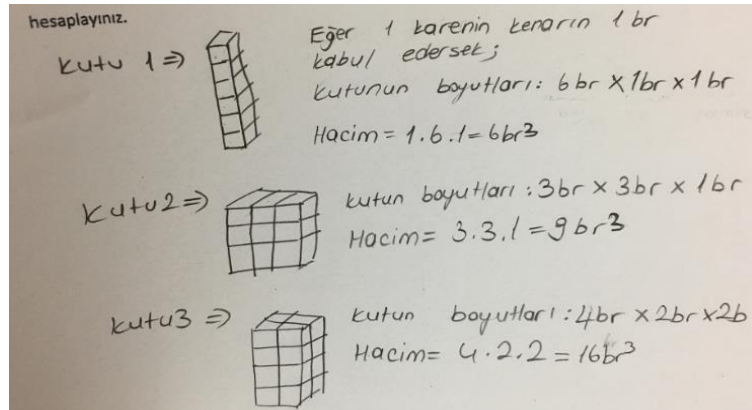 hesaplayınız.
Eğer 1 karenin kenarın 1 br
kabul edersek;
Kutu 1 ⇒
Kutunun boyutları: 6br x 1br x 1br
Hacim = 1.6.1 = 6br³
Kutu2 ⇒
kutun boyutları: 3br x 3br x 1br
Hacim = 3.3.1 = 9br³
kutu3 ⇒
kutun boyutları: 4br x 2br x 2b
Hacim = 4.2.2 = 16br³